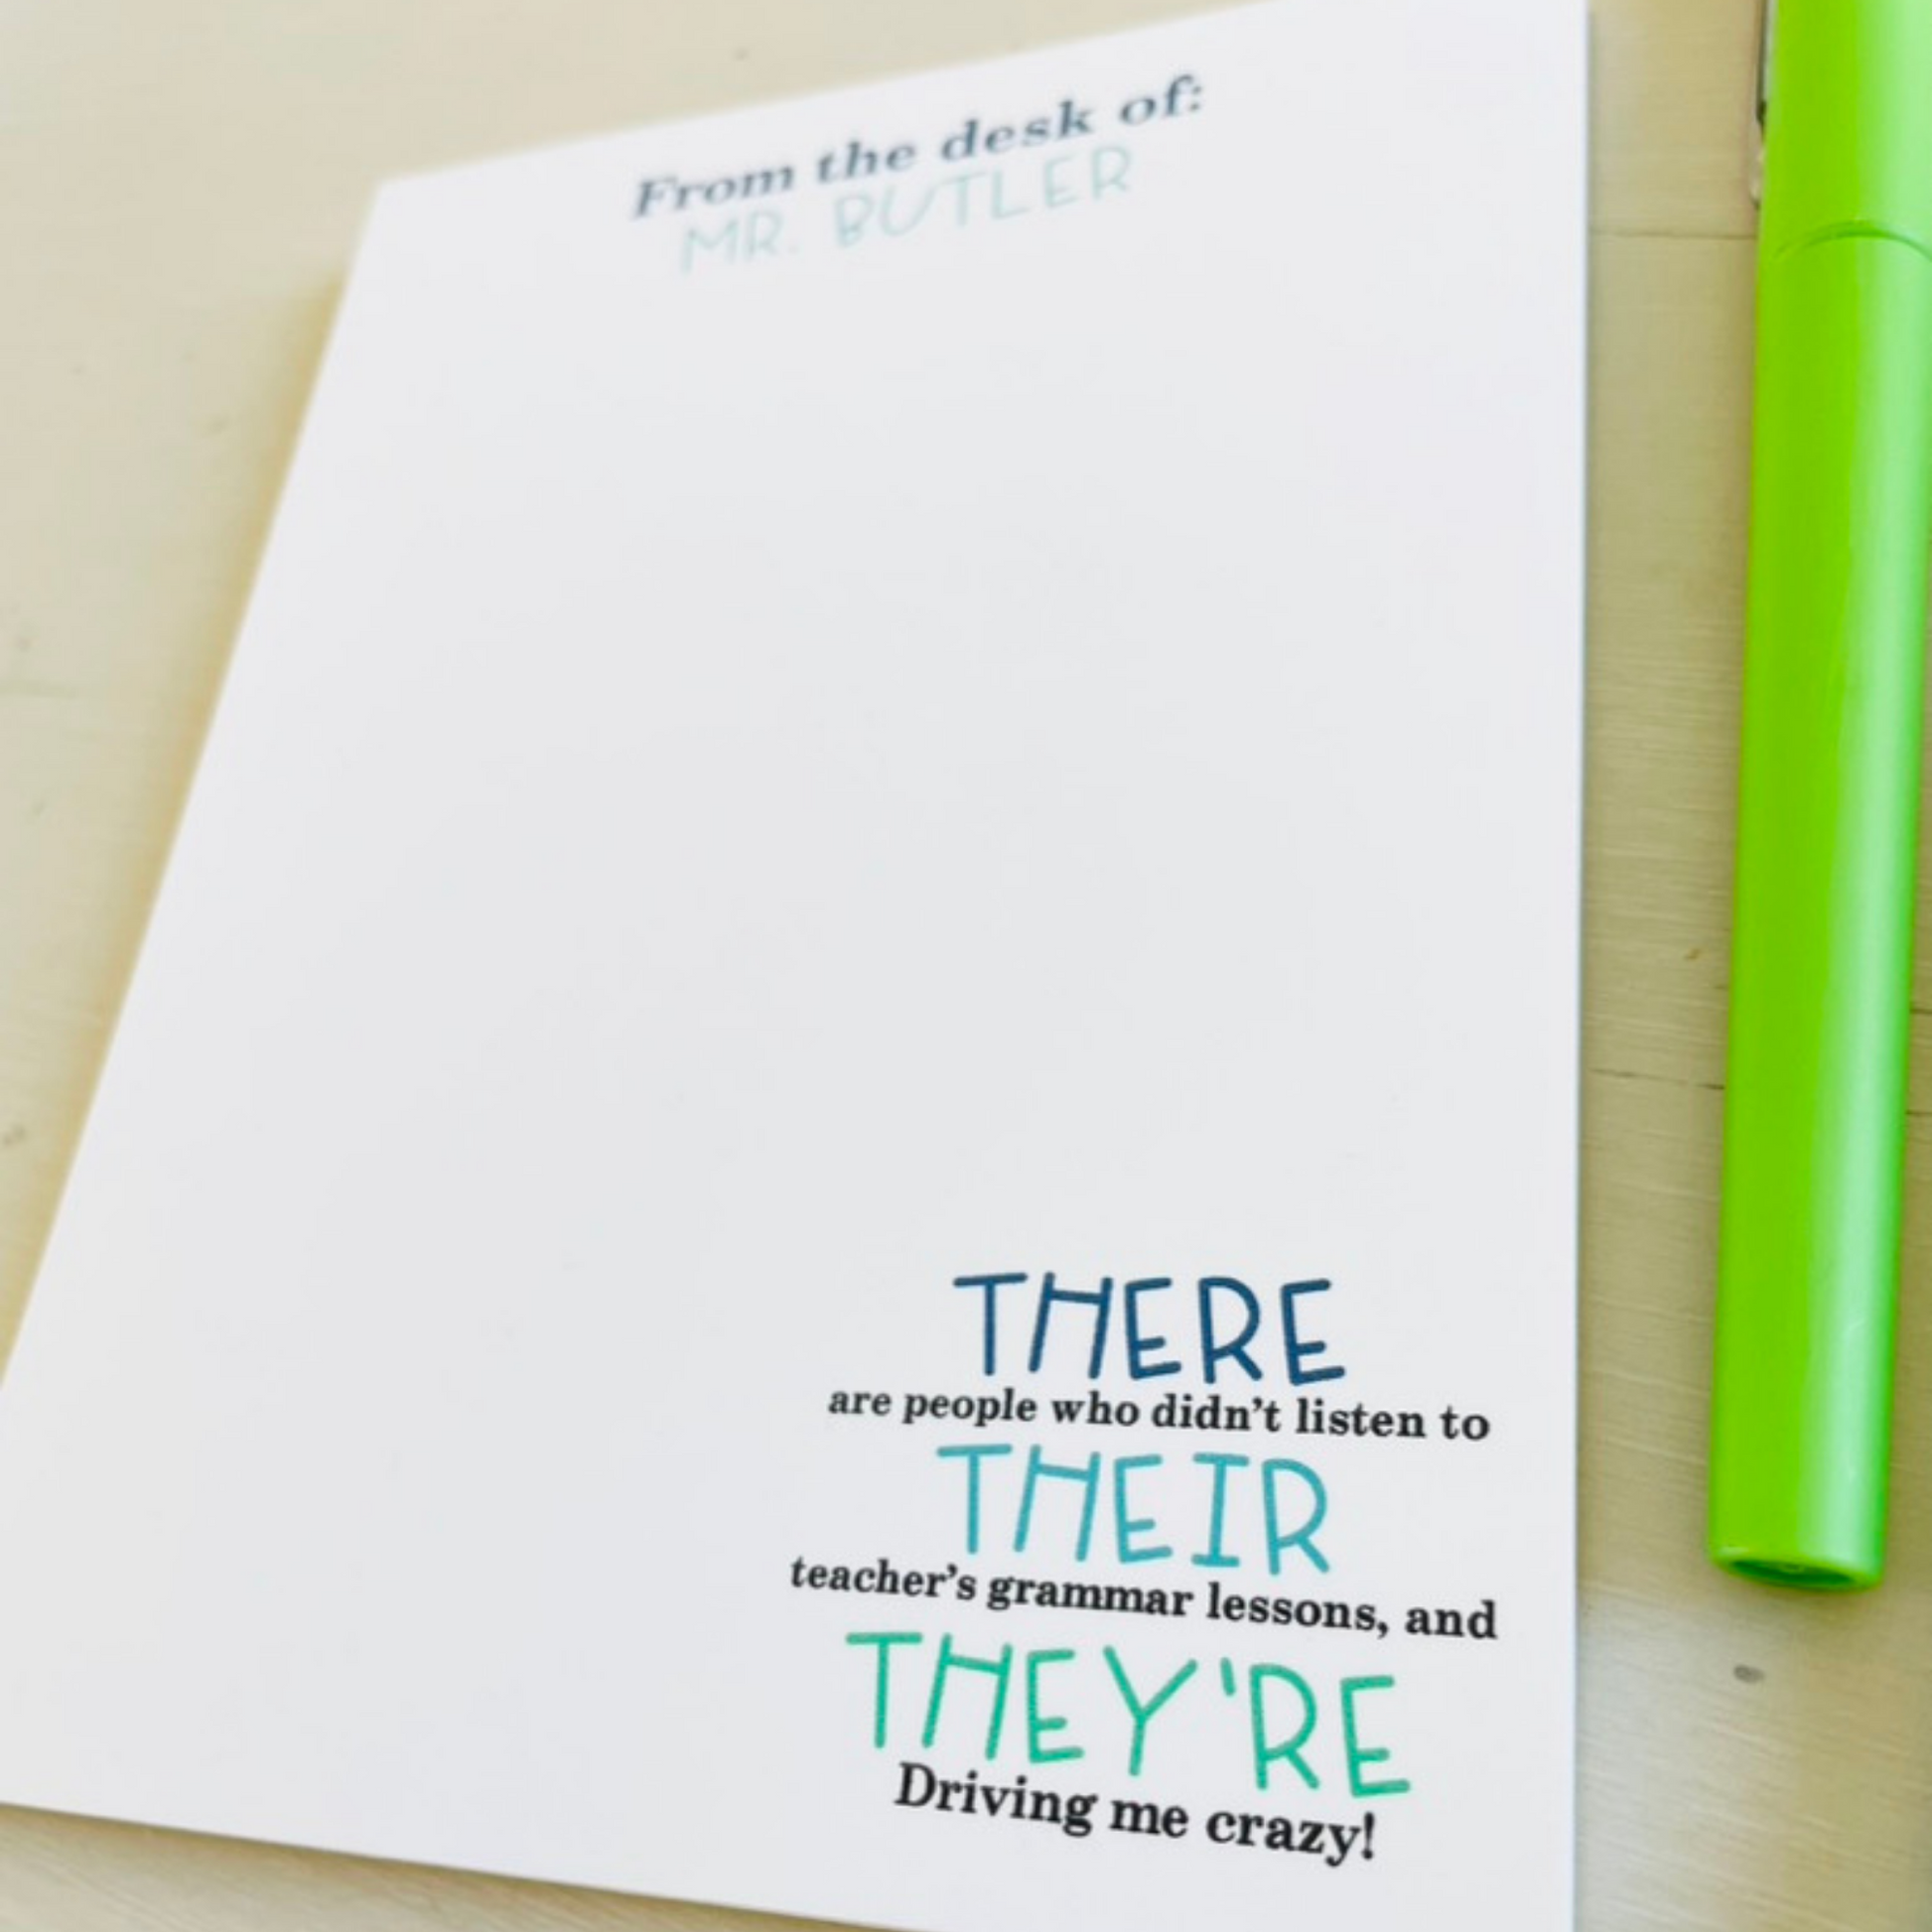 From the desk of:
MR. BUTLER
THERE
are people who didn't listen to
THEIR
teacher's grammar lessons, and
THEY'RE
Driving me crazy!